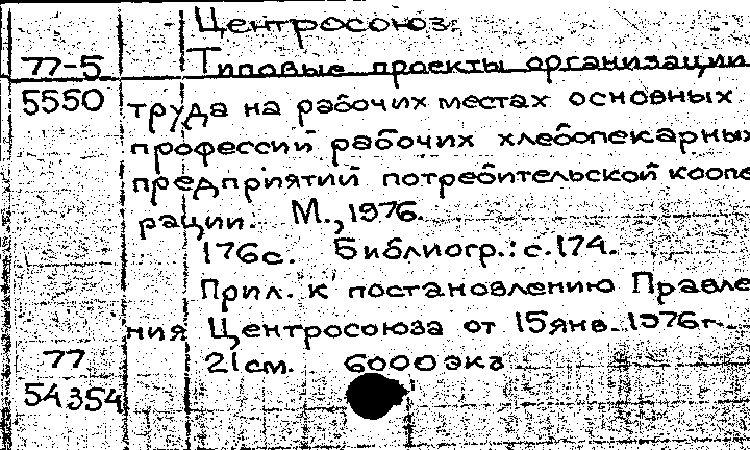 Центросоюз.
77-5 Типовые проекты организации
5550 труда на рабочих местах основных
профессий рабочих хлебопекарных
предприятий потребительской коопе
рации. М., 1976.
176с. Библиогр.: с.174.
Прил. к постановлению Правле
ния Центросоюза от 15 янв. 1976г.
77 21см. 6000 экз
54354